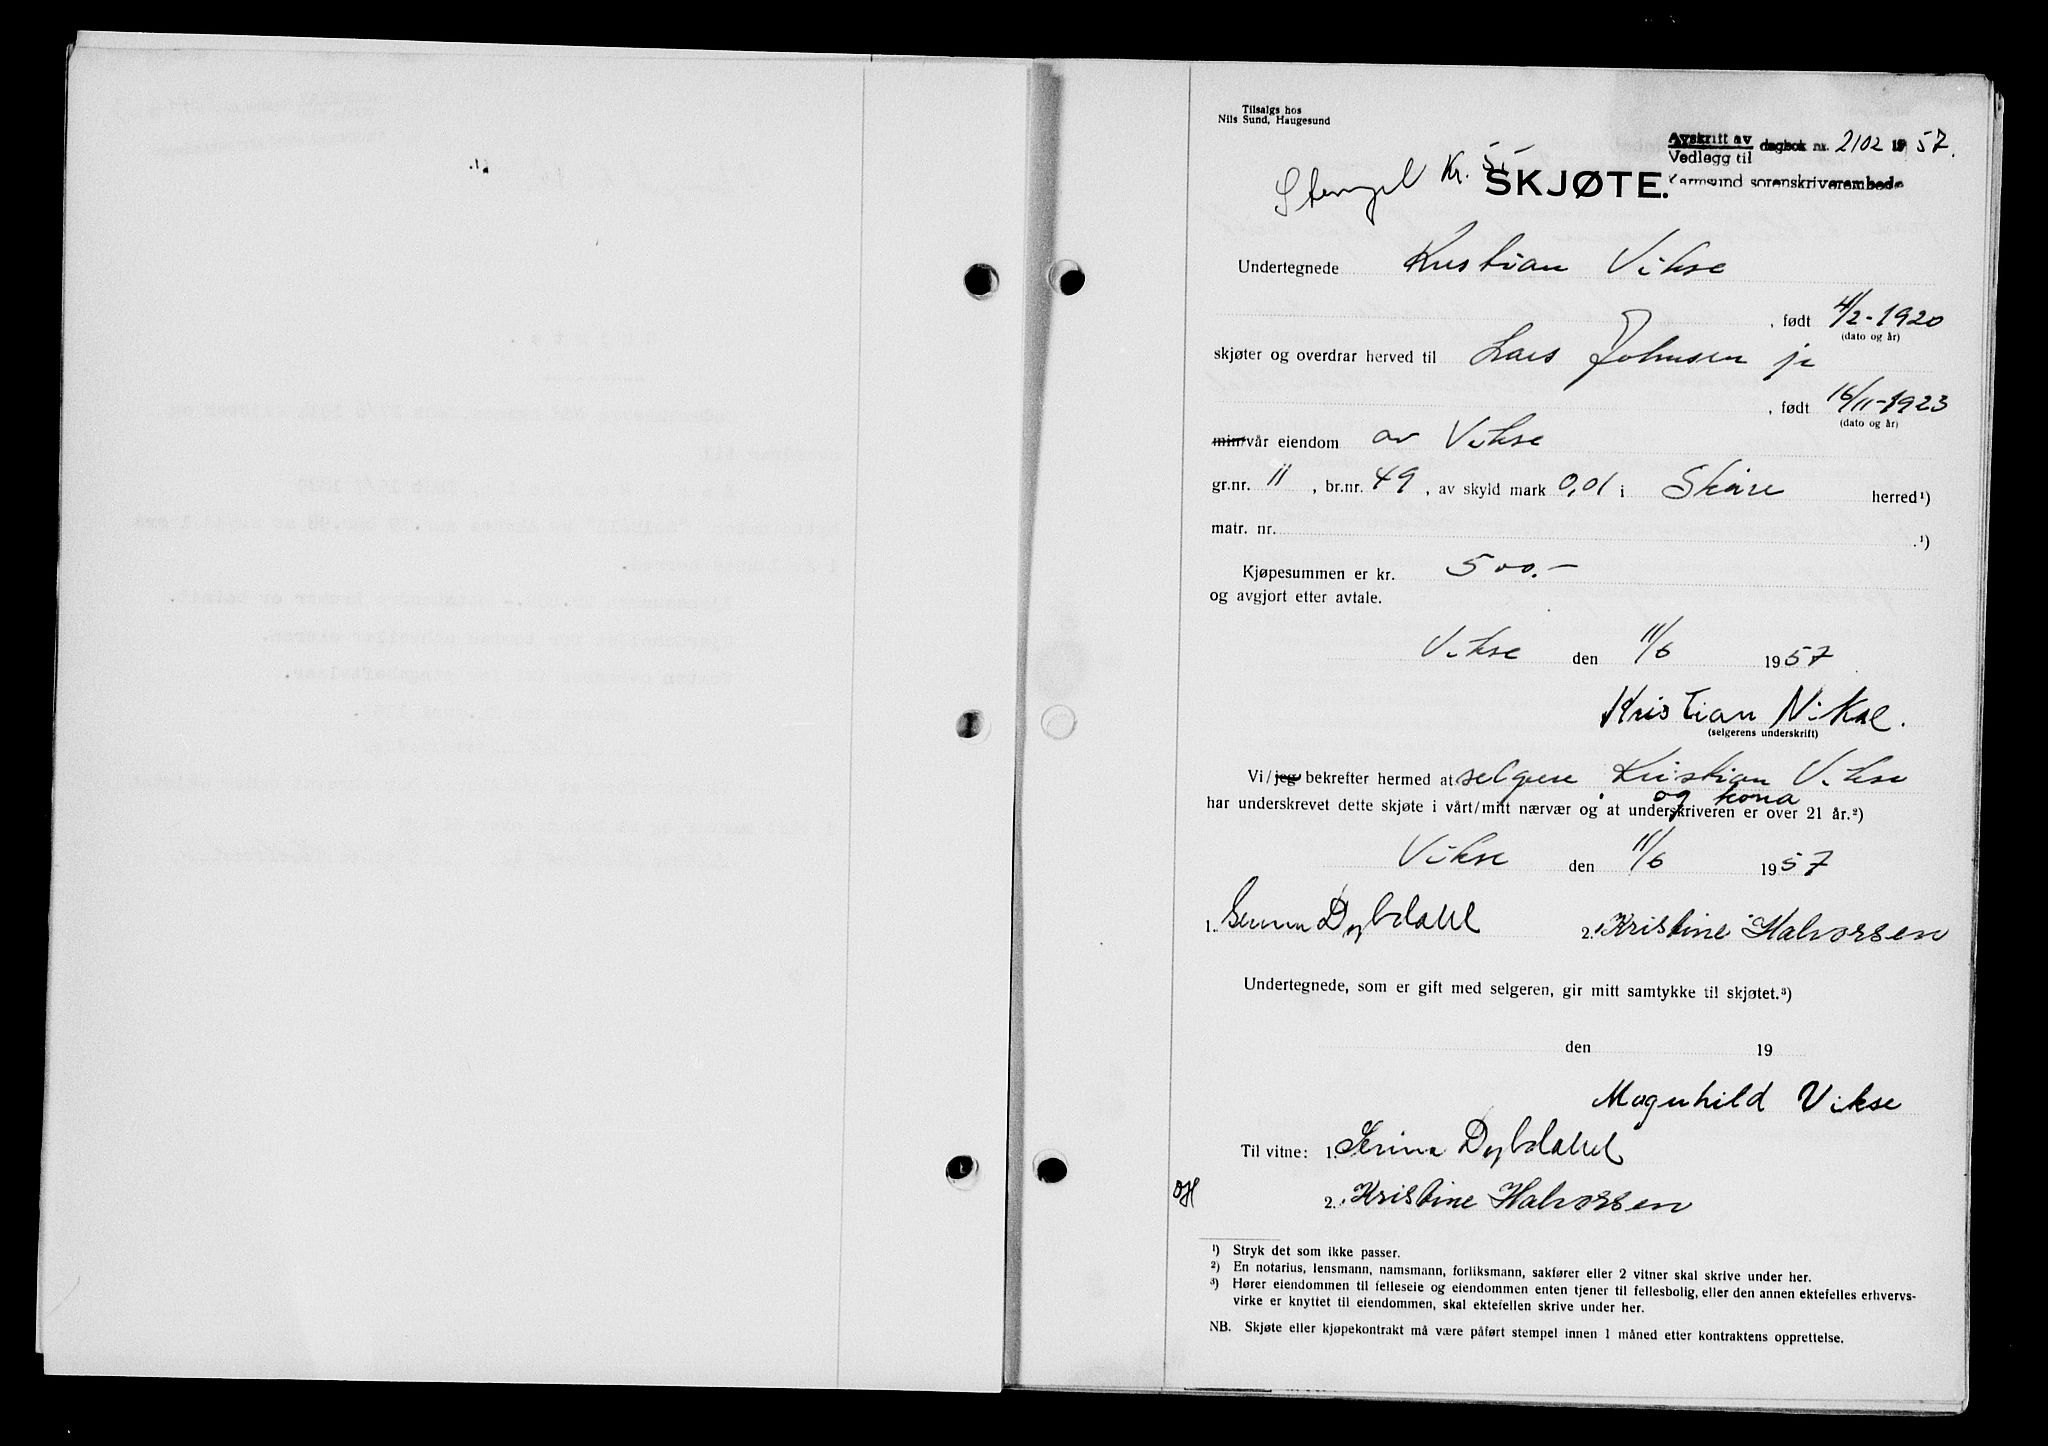 Tilsalgs hos
Nils Sund, Haugesund
Avskrift av
Vedlegg til
dagbok nr. 2102 1957.
Karmsund sorenskriverembede
Stempel Kr. 5.-
SKJØTE.
Undertegnede Kristian Vikse
, født 4/2-1920
(dato og år)
skjøter og overdrar herved til Lars Johnsen jr
, født 16/11-1923
(dato og år)
min/vår eiendom av Vikse
gr.nr. 11, br.nr. 49, av skyld mark 0,01 i Skåre herred¹)
matr. nr. .¹)
Kjøpesummen er kr. 500.-
og avgjort etter avtale.
Vikse den 11/6 1957
Kristian Vikse.
(selgerens underskrift)
Vi/jeg bekrefter hermed at selgere Kristian Vikse
og kona
har underskrevet dette skjøte i vårt/mitt nærvær og at underskriveren er over 21 år.²)
Vikse den 11/6 1957
1. Serina Dybdahl 2. Kristine Halvorsen
Undertegnede, som er gift med selgeren, gir mitt samtykke til skjøtet.³)
den 19
Magnhild Vikse
Til vitne: 1. Serina Dybdahl
2. Kristine Halvorsen
¹) Stryk det som ikke passer.
²) En notarius, lensmann, namsmann, forliksmann, sakfører eller 2 vitner skal skrive under her.
³) Hører eiendommen til felleseie og eiendommen enten tjener til fellesbolig, eller den annen ektefelles erhvervs-
virke er knyttet til eiendommen, skal ektefellen skrive under her.
NB. Skjøte eller kjøpekontrakt må være påført stempel innen 1 måned etter kontraktens opprettelse.